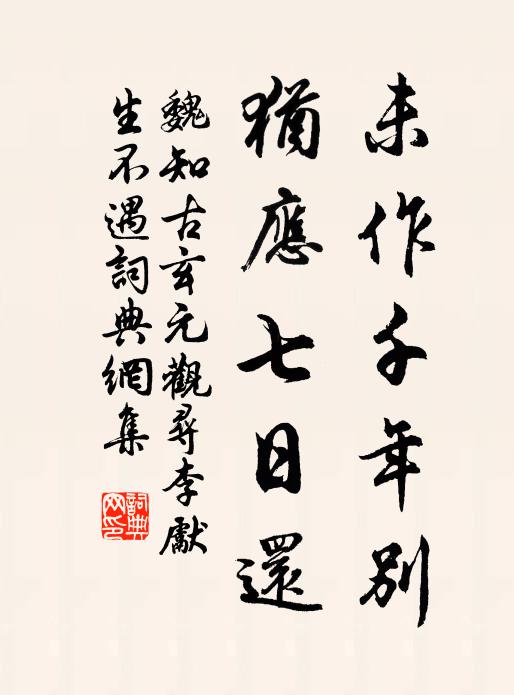 未作千年别
猶應七日還
魏知古玄元觀尋李獻
生不遇詞典網集
詞典
网印